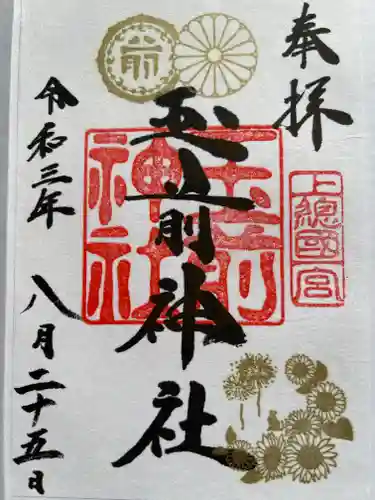 奉拝
上總國一宮
玉前神社
玉前神社
前
令和三年
八月二十五日